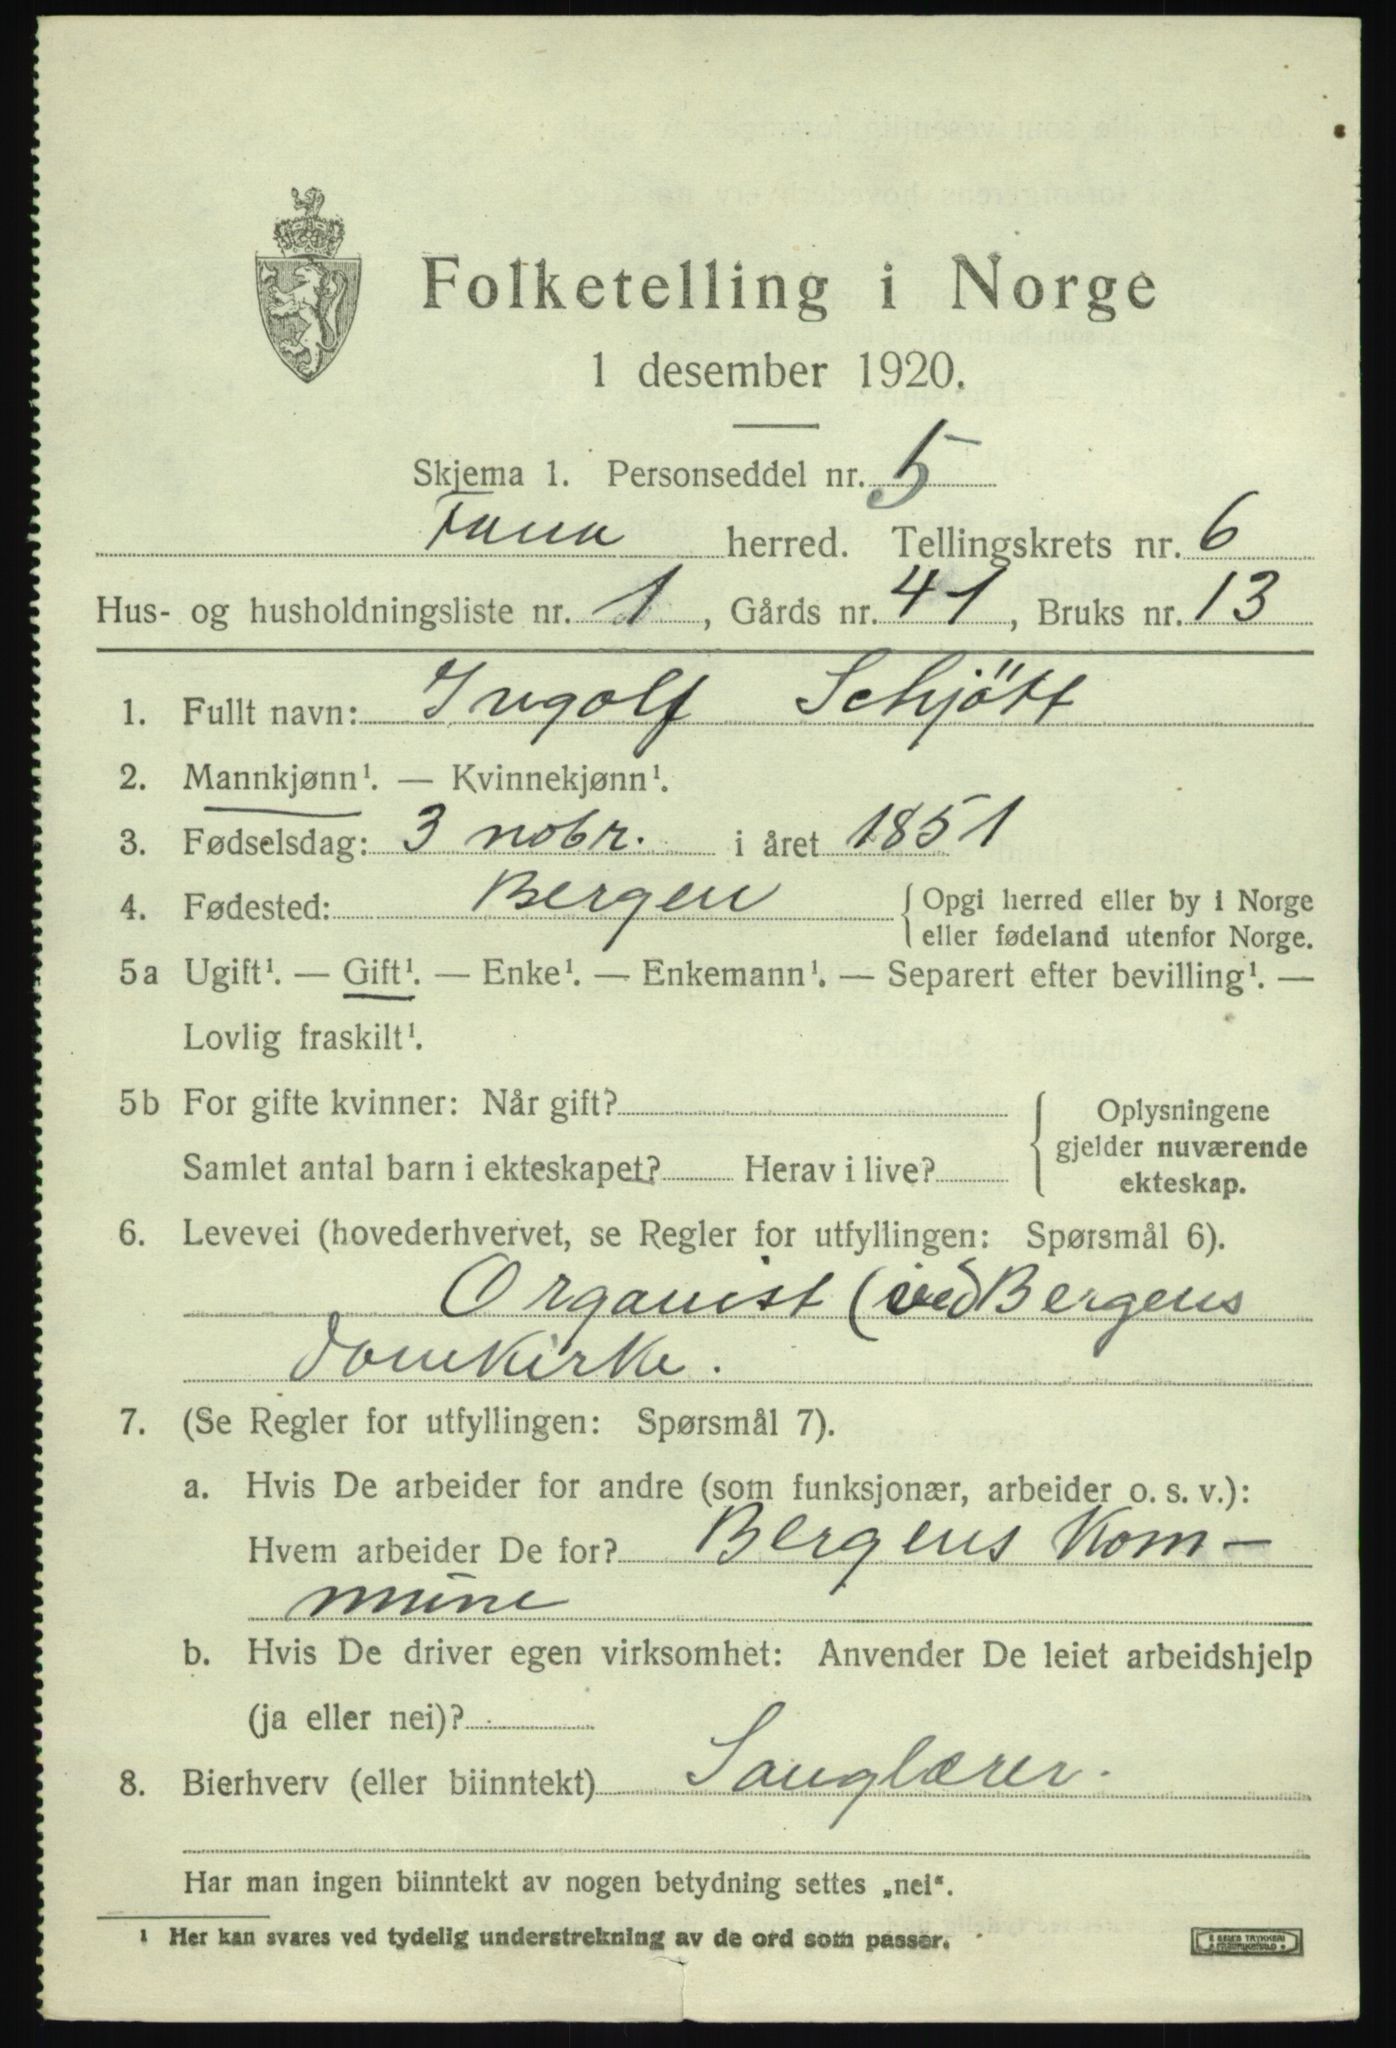 Folketelling i Norge
1 desember 1920.
Skjema 1. Personseddel nr. 5
Fana herred. Tellingskrets nr. 6
Hus- og husholdningsliste nr. 1, Gårds nr. 41, Bruks nr. 13
1. Fullt navn: Ingolf Schjött
2. Mannkjønn¹. — Kvinnekjønn¹.
3. Fødselsdag: 3 nobr. i året 1851
4. Fødested: Bergen { Opgi herred eller by i Norge
eller fødeland utenfor Norge.
5a Ugift¹. — Gift¹. — Enke¹. — Enkemann¹. — Separert efter bevilling¹. —
Lovlig fraskilt¹.
5b For gifte kvinner: Når gift? { Oplysningene
gjelder nuværende
Samlet antal barn i ekteskapet? Herav i live? ekteskap.
6. Levevei (hovederhvervet, se Regler for utfyllingen: Spørsmål 6).
Organist (ved Bergens
domkirke.
7. (Se Regler for utfyllingen: Spørsmål 7).
a. Hvis De arbeider for andre (som funksjonær, arbeider o. s. v.):
Hvem arbeider De for? Bergens Kom-
mune
b. Hvis De driver egen virksomhet: Anvender De leiet arbeidshjelp
(ja eller nei)?
8. Bierhverv (eller biinntekt) Sanglærer.
Har man ingen biinntekt av nogen betydning settes „nei“.
¹ Her kan svares ved tydelig understrekning av de ord som passer.